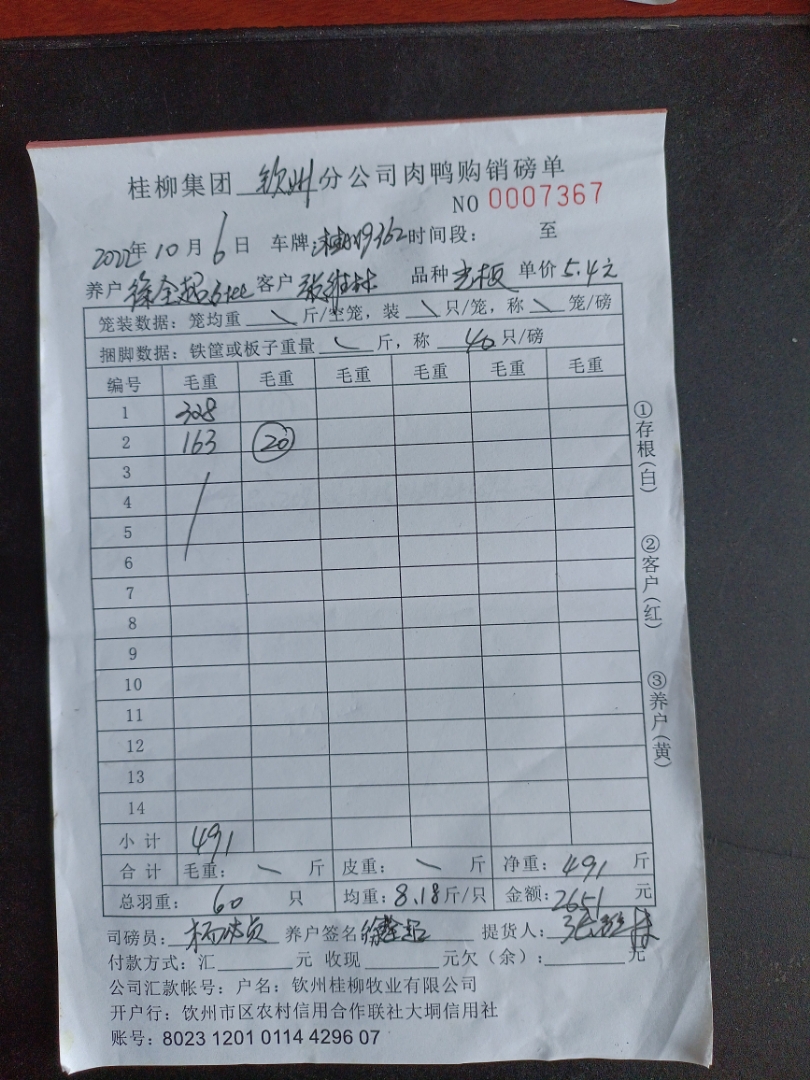 桂柳集团 钦州 分公司肉鸭购销磅单
NO 0007367
2022年 10 月 6 日 车牌: 9362 时间段: 至
养户 徐全超 客户 张维林 品种 光板 单价 5.4元
笼装数据: 笼均重 \ 斤/空笼, 装 \ 只/笼, 称 \ 笼/磅
捆脚数据: 铁筐或板子重量 \ 斤, 称 40 只/磅
编号 毛重 毛重 毛重 毛重 毛重 毛重
1 328
2 163 20
3
4
5
6
7
8
9
10
11
12
13
14
小计 491
合计 毛重: \ 斤 皮重: \ 斤 净重: 491 斤
总羽重: 60 只 均重: 8.18斤/只 金额: 2651 元
司磅员: 养户签名 徐全超 提货人: 张维林
付款方式: 汇 元 收现 元欠(余): 元
公司汇款帐号: 户名: 钦州桂柳牧业有限公司
开户行: 钦州市区农村信用合作联社大垌信用社
账号: 8023 1201 0114 4296 07
①存根(白)
②客户(红)
③养户(黄)